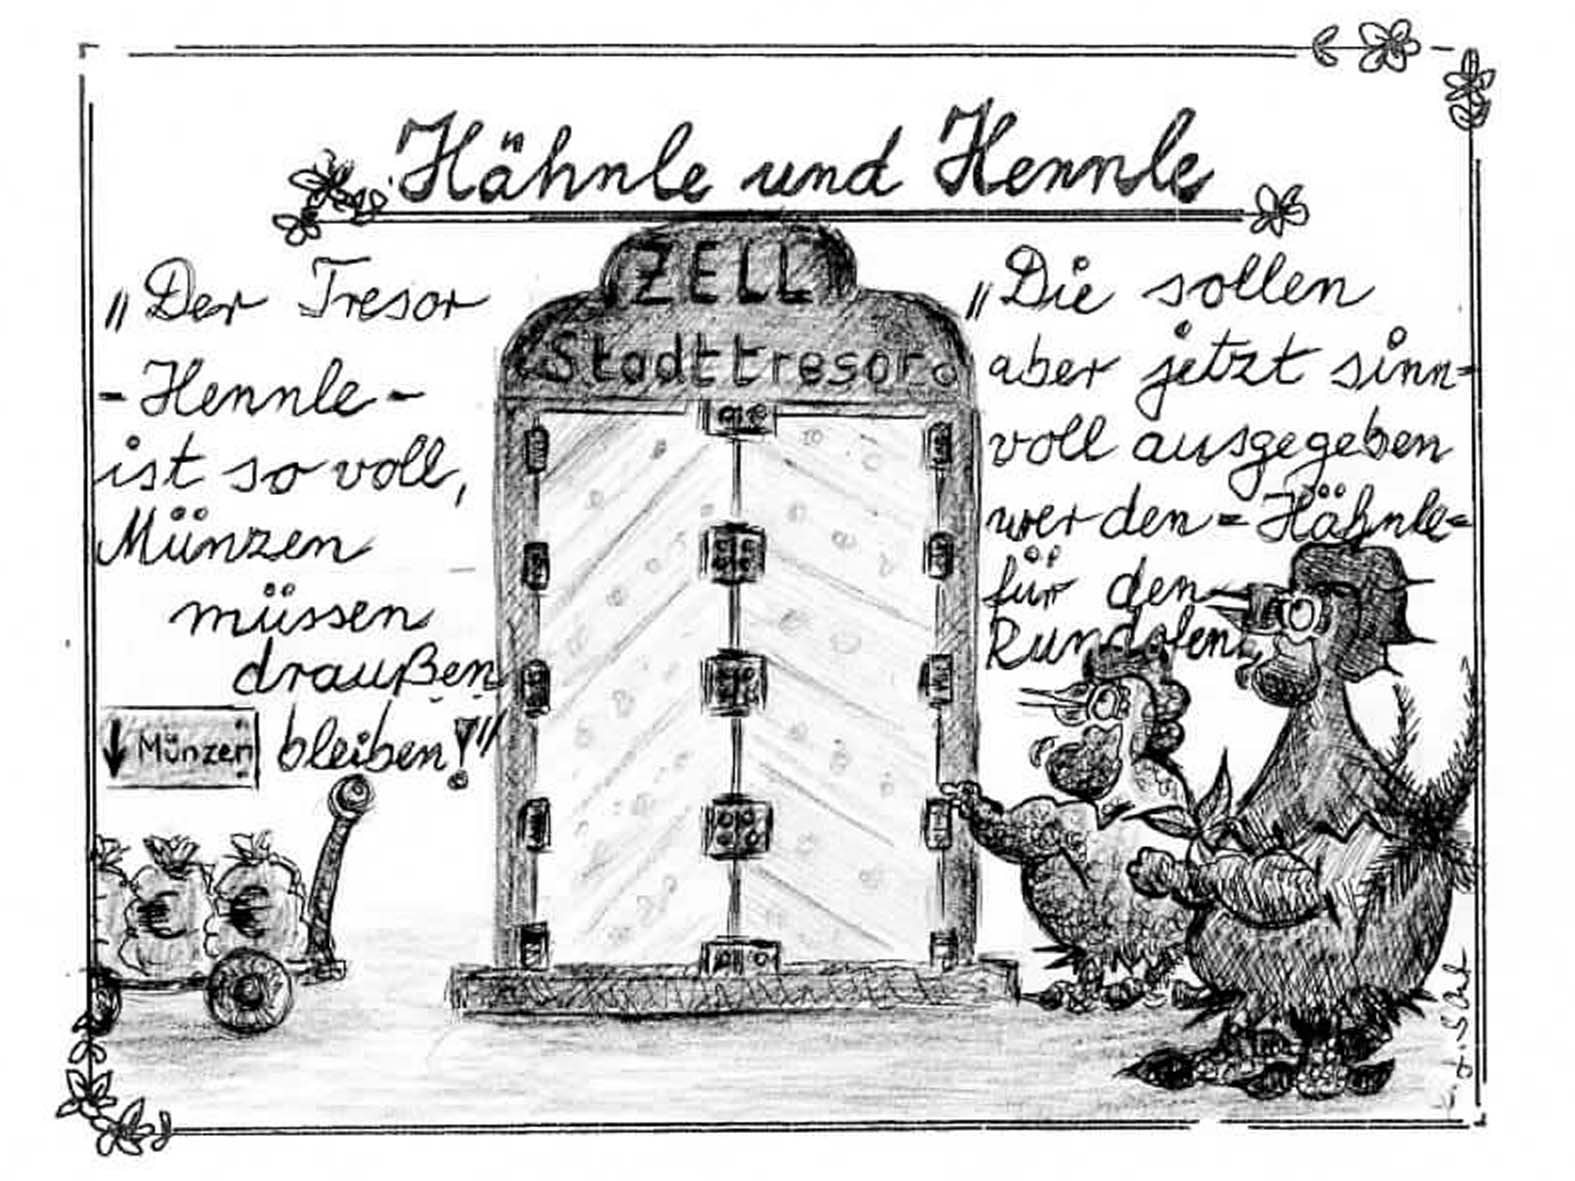 Hähnle und Hennle
ZELL
Stadttresor
„Der Tresor
- Hennle -
ist so voll,
Münzen
müssen
draußen
bleiben!"
Münzen
€
€
„Die sollen
aber jetzt sinn-
voll ausgegeben
werden - Hähnle -
für den
Rundofen."